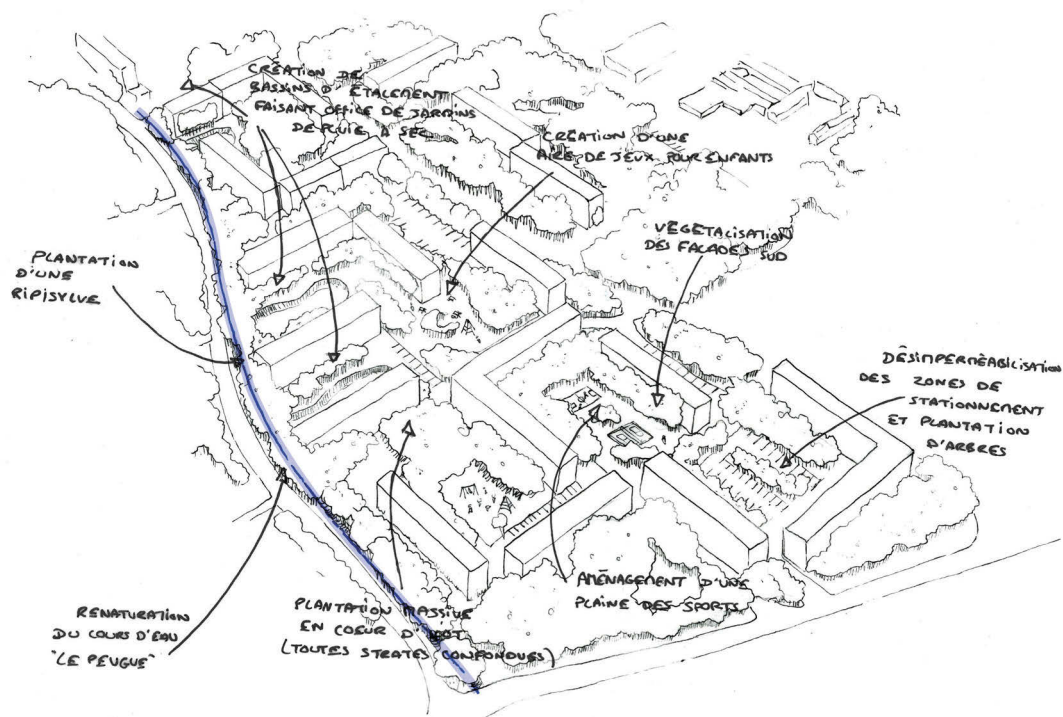 CRÉATION DE
BASSINS D'ÉTALEMENT
FAISANT OFFICE DE JARDINS
DE PLUIE À SEC
CRÉATION D'UNE
AIRE DE JEUX POUR ENFANTS
VÉGÉTALISATION
DES FAÇADES SUD
PLANTATION
D'UNE
RIPISYLVE
DÉSIMPERMÉABILISATION
DES ZONES DE
STATIONNEMENT
ET PLANTATION
D'ARBRES
RENATURATION
DU COURS D'EAU
"LE PEUGUE"
PLANTATION MASSIVE
EN COEUR D'ILOT
(TOUTES STRATES CONFONDUES)
AMÉNAGEMENT D'UNE
PLAINE DES SPORTS